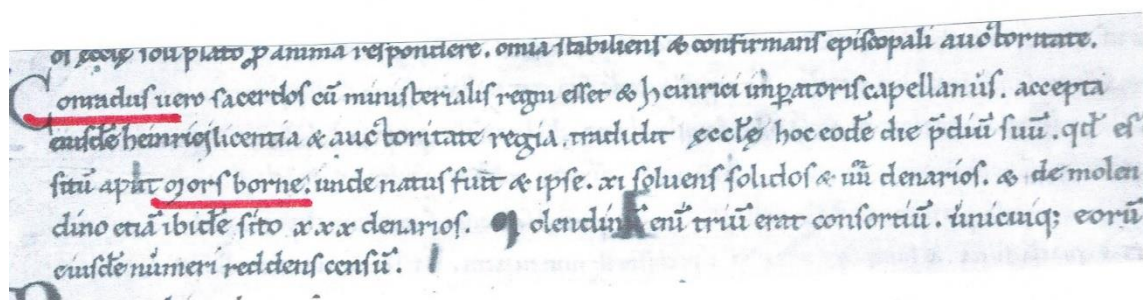 anima respondere. om̄ia stabiliens & confirmans episcopali auctoritate.
Conradus uero sacerdos cū ministerialis regni esset & heinrici imp̄atoris capellanus. accepta
eiusdē heinrici licentia & auctoritate regia. tradidit eccl̄ę hoc eodē die p̄diū suū. qd̄ est
sitū aput Morsborne. unde natus fuit & ipse. xi soluens solidos & iiii denarios. & de molen
dino etiā ibidē sito xxx denarios. Molendinū enī triū erat consortiū. unicuiq; eorū
eiusdē numeri reddens censū.